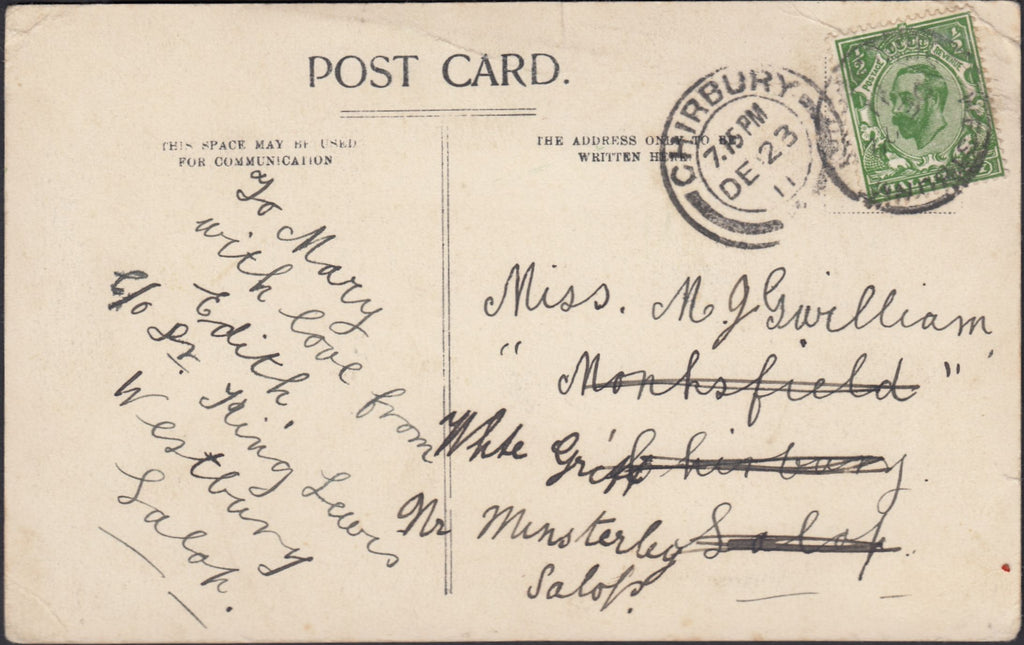 POST CARD.
THIS SPACE MAY BE USED
FOR COMMUNICATION
THE ADDRESS ONLY TO BE
WRITTEN HERE
CHIRBURY
7.15 PM
DE 23
11
POSTAGE
REVENUE
To Mary
with love from
Edith
c/o Dr. King Lewis
Westbury
Salop.
Miss. M. J Gwilliam
" Monksfield "
White Grit Chirbury
Nr Minsterley Salop.
Salop.